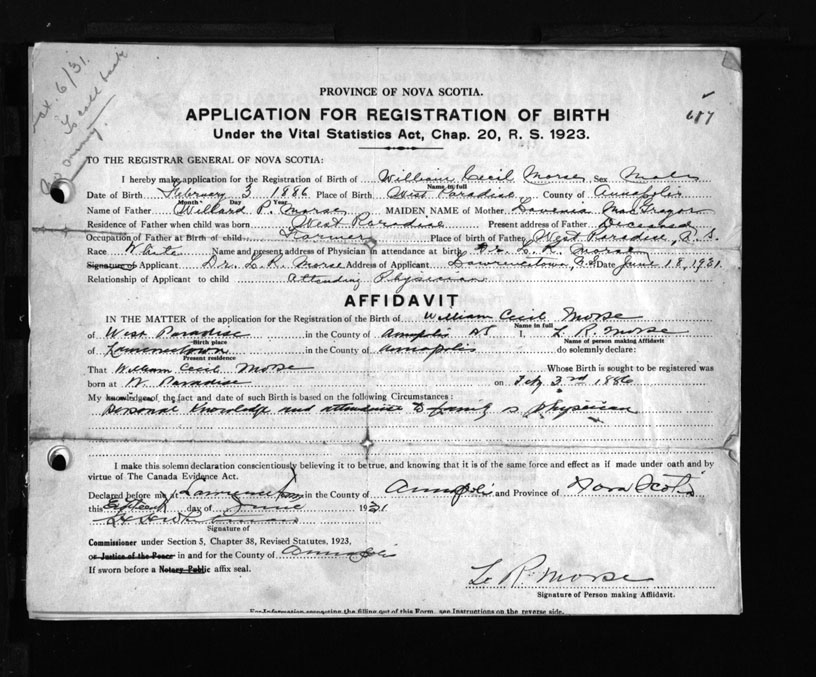 Oct. 6/31.
To call back
687
PROVINCE OF NOVA SCOTIA.
APPLICATION FOR REGISTRATION OF BIRTH
Under the Vital Statistics Act, Chap. 20, R. S. 1923.
TO THE REGISTRAR GENERAL OF NOVA SCOTIA:
I hereby make application for the Registration of Birth of William Cecil Morse Sex Male
Name in full
Date of Birth February 3 1886 Place of Birth West Paradise County of Annapolis
Month Day Year
Name of Father Willard P. Morse MAIDEN NAME of Mother Lovenia MacGregor
Residence of Father when child was born West Paradise Present address of Father Deceased
Occupation of Father at Birth of child Farmer Place of birth of Father West Paradise, N. S.
Race White Name and present address of Physician in attendance at birth Dr. L. R. Morse
Signature of Applicant Dr. L. R. Morse Address of Applicant Lawrencetown, N.S Date June 18, 1931.
Relationship of Applicant to child Attending Physician
AFFIDAVIT
IN THE MATTER of the application for the Registration of the Birth of William Cecil Morse
Name in full
of West Paradise in the County of Annapolis NS I, L. R. Morse
Birth place Name of person making Affidavit
of Lawrencetown in the County of Annapolis do solemnly declare:
Present residence
That William Cecil Morse Whose Birth is sought to be registered was
born at W. Paradise on Feby 3rd 1886
My knowledge of the fact and date of such Birth is based on the following Circumstances:
personal knowledge and attendance to family as physician
I make this solemn declaration conscientiously believing it to be true, and knowing that it is of the same force and effect as if made under oath and by
virtue of The Canada Evidence Act.
Declared before me at Lawrencetown in the County of Annapolis and Province of Nova Scotia
this day of June 1931
Signature of
Commissioner under Section 5, Chapter 38, Revised Statutes, 1923,
or Justice of the Peace in and for the County of Annapolis
If sworn before a Notary Public affix seal.
L. R. Morse
Signature of Person making Affidavit.
For Information respecting the filling out of this Form, see Instructions on the reverse side.